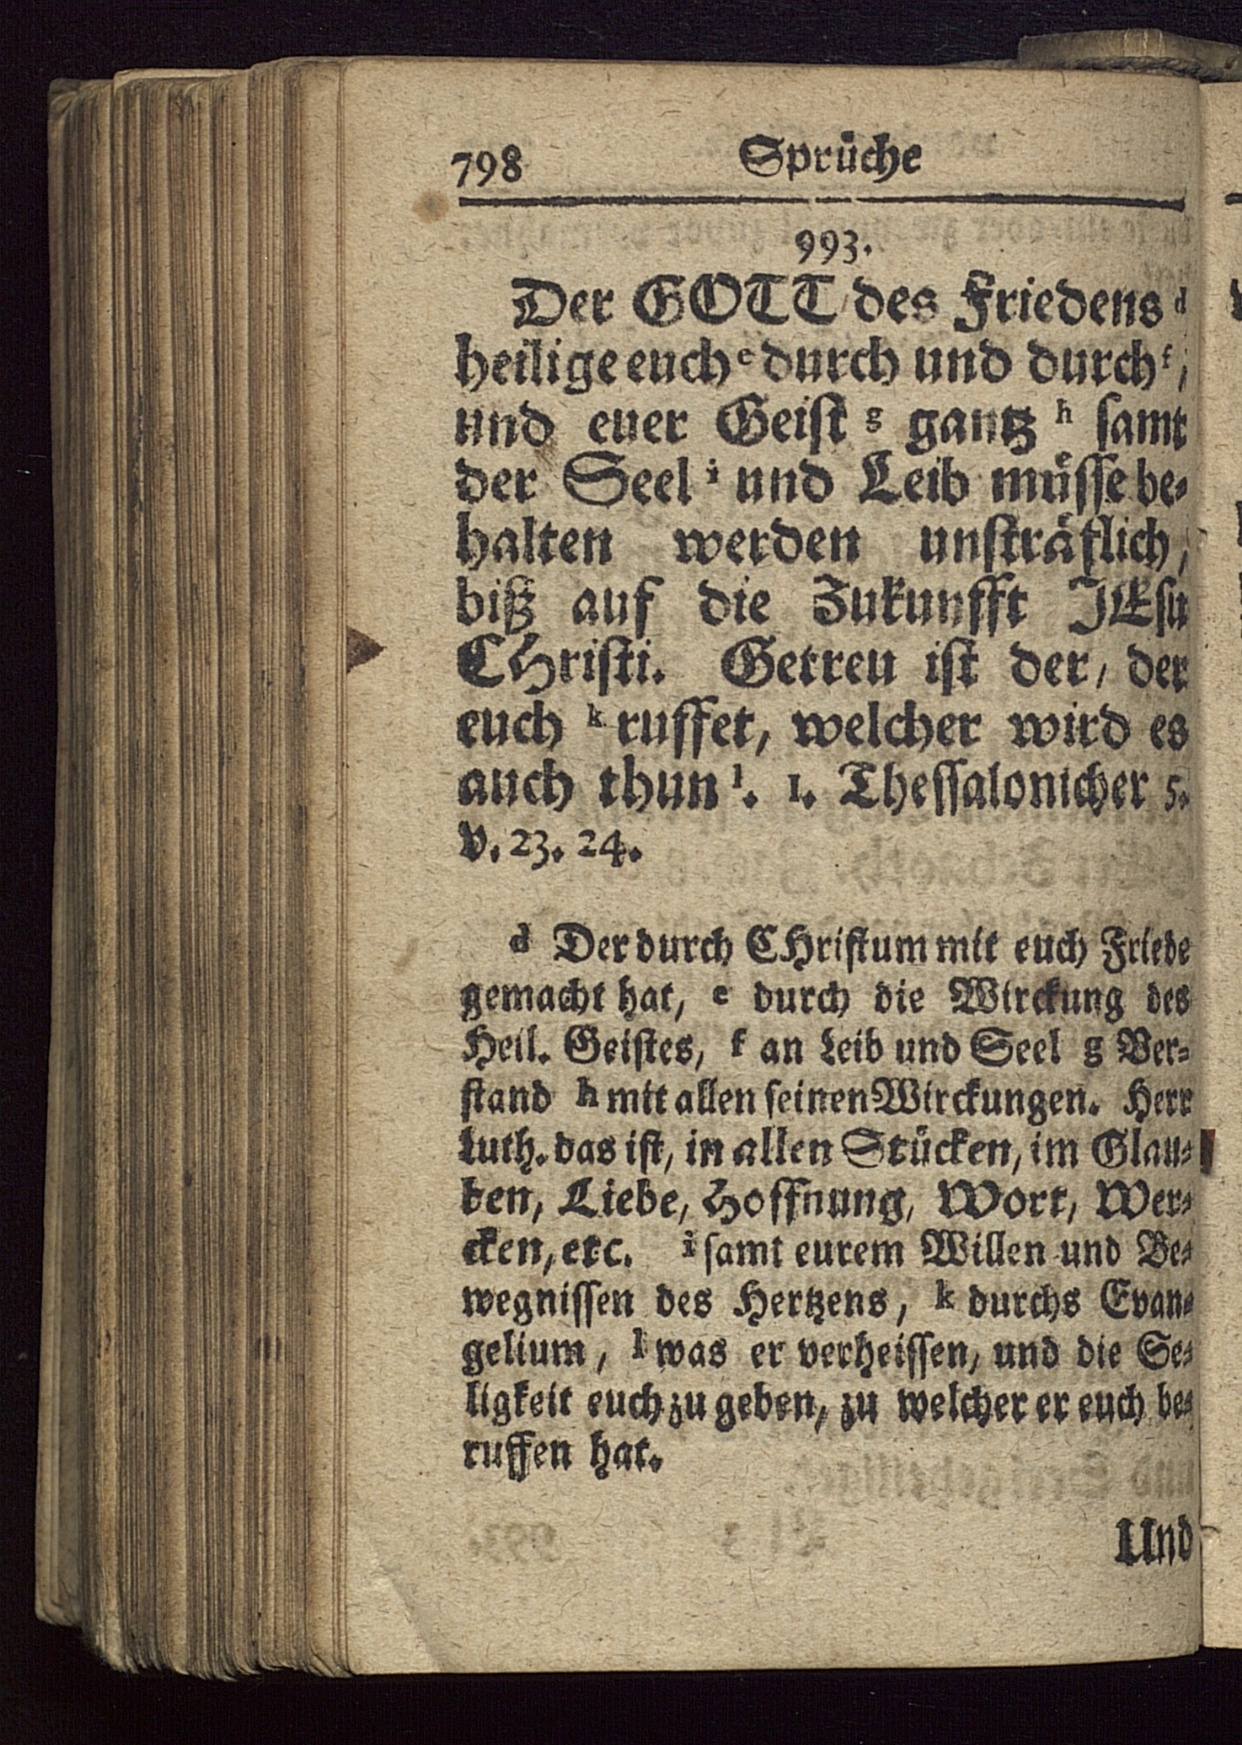 798 Sprüche
993.
Der GOTT des Friedens d
heilige euch e durch und durch f,
und euer Geist g gantz h samt
der Seel i und Leib müsse be-
halten werden unsträflich,
biß auf die Zukunfft JEsu
CHristi. Getreu ist der, der
euch k ruffet, welcher wird es
auch thun l. 1. Thessalonicher 5.
v. 23. 24.
d Der durch CHristum mit euch Friede
gemacht hat, e durch die Wirckung des
Heil. Geistes, f an Leib und Seel g Ver-
stand h mit allen seinen Wirckungen. Herr
Luth. das ist, in allen Stücken, im Glau-
ben, Liebe, Hoffnung, Wort, Wer-
cken, etc. i samt eurem Willen und Be-
wegnissen des Hertzens, k durchs Evan-
gelium, l was er verheissen, und die Se-
ligkeit euch zu geben, zu welcher er euch be-
ruffen hat.
Und